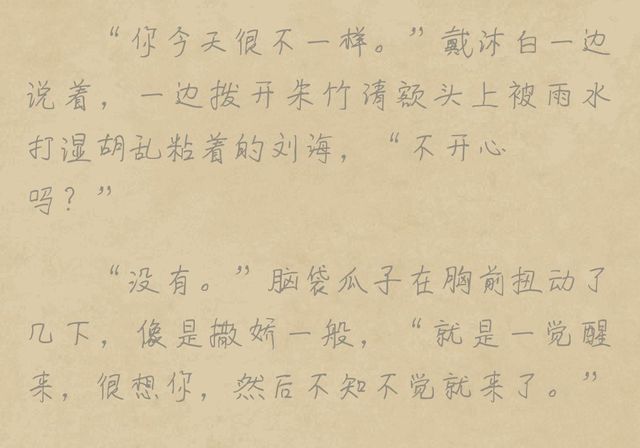 “你今天很不一样。”戴沐白一边
说着，一边拨开朱竹清额头上被雨水
打湿胡乱粘着的刘海，“不开心
吗？”
“没有。”脑袋瓜子在胸前扭动了
几下，像是撒娇一般，“就是一觉醒
来，很想你，然后不知不觉就来了。”